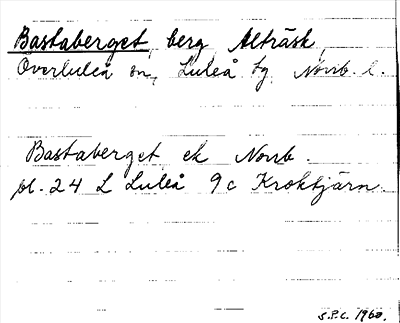 Bastaberget, berg Alträsk,
Överluleå sn, Luleå tg, Norrb. l.
Bastaberget ek Norrb.
bl. 24 L Luleå 9c Kroktjärn.
S.P.C. 1960.